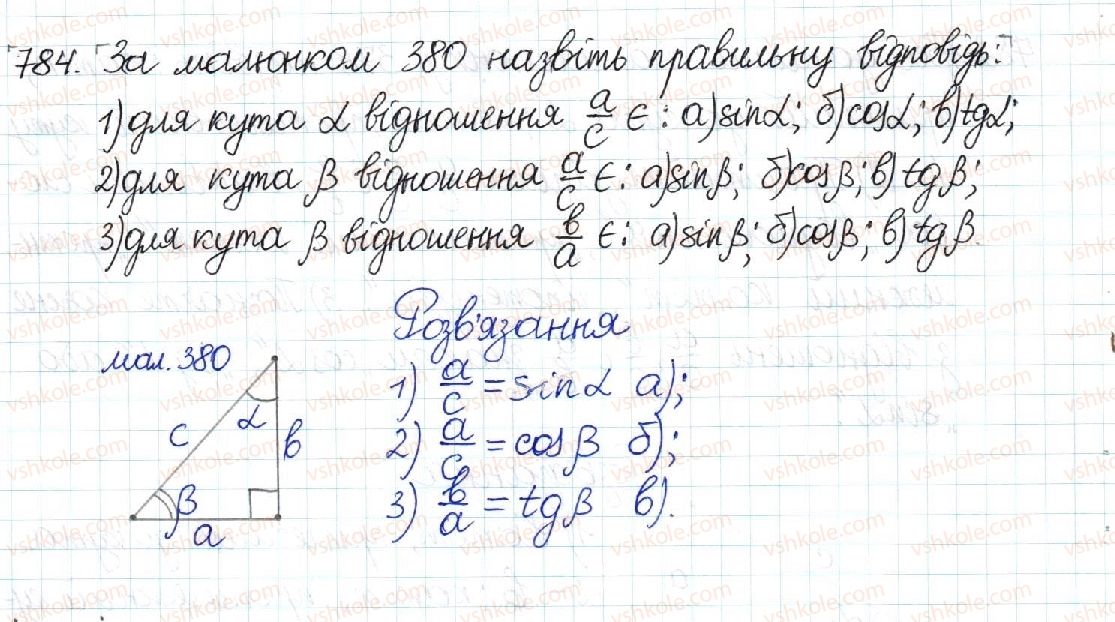 784. За малюнком 380 назвіть правильну відповідь:
1) для кута α відношення a/c є: а) sinα; б) cosα; в) tgα;
2) для кута β відношення a/c є: а) sinβ; б) cosβ; в) tgβ;
3) для кута β відношення в/a є: а) sinβ; б) cosβ; в) tgβ.
Розв'язання
мал. 380
1) a/c = sinα а);
2) a/c = cosβ б);
3) в/a = tgβ в).
c
α
в
β
a
vshkole.com